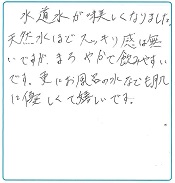 水道水が美味しくなりました。
天然水ほどスッキリ感は無
いですが、まろやかで飲みやすい
です。更にお風呂の水なども肌
に優しくて嬉しいです。